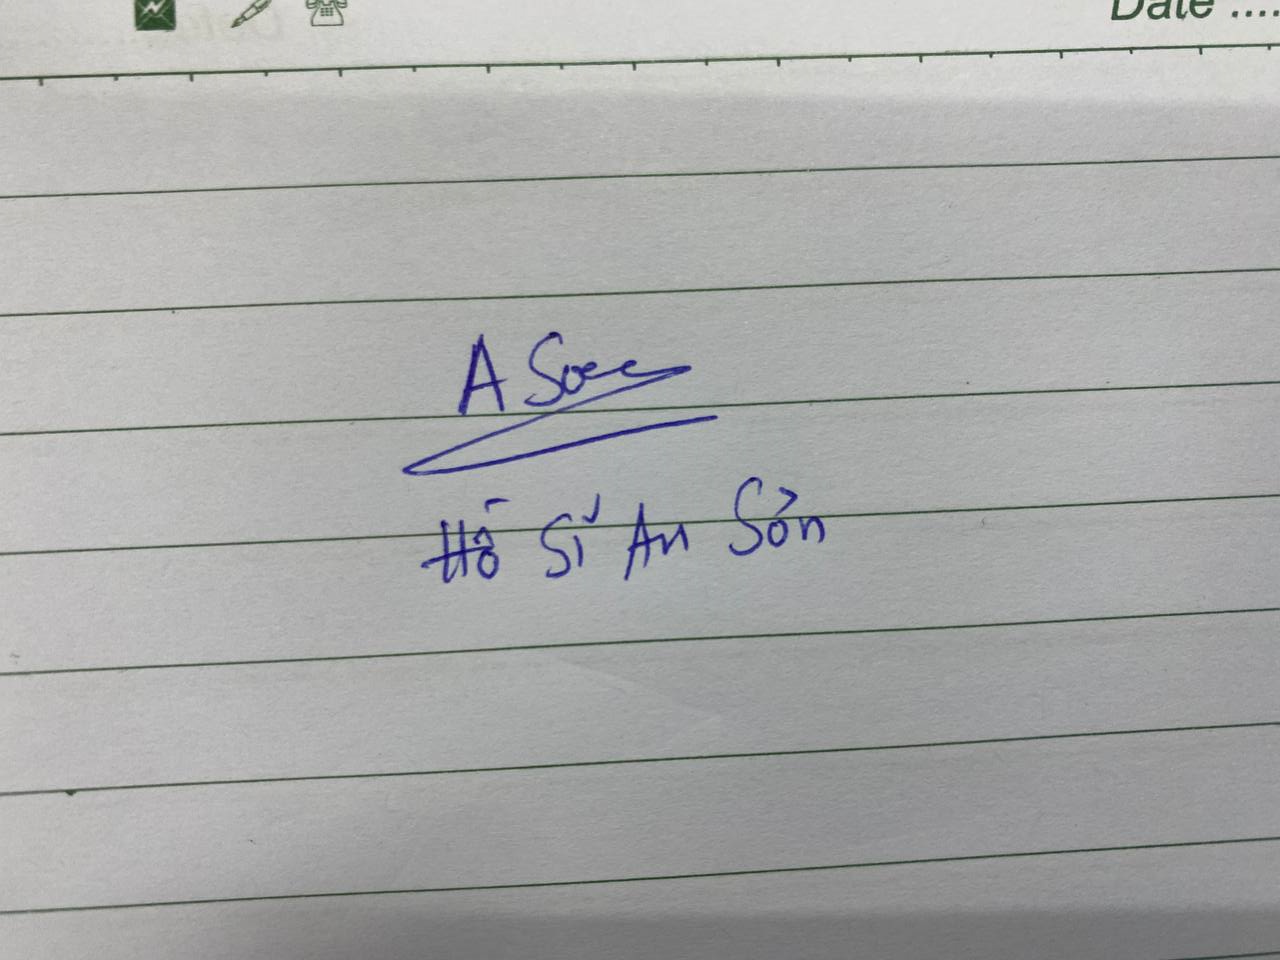 Date ....
A Son
Hồ Sĩ An Sơn